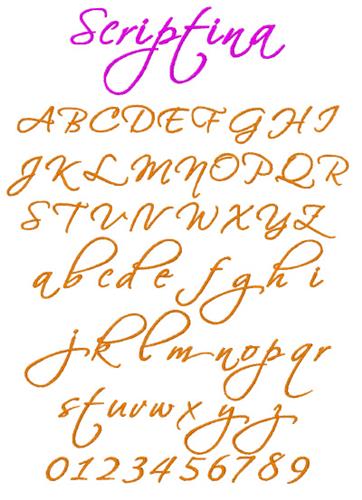 Scriptina
A B C D E F G H I
J K L M N O P Q R
S T U V W X Y Z
a b c d e f g h i
j k l m n o p q r
s t u v w x y z
0 1 2 3 4 5 6 7 8 9